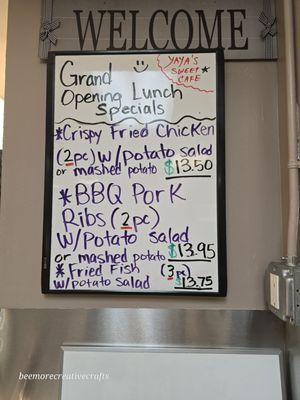 WELCOME
Grand
Opening Lunch
Specials
YAYA'S
SWEET
CAFE
*Crispy Fried Chicken
(2pc) W/Potato salad
or mashed potato $13.50
*BBQ Pork
Ribs (2pc)
W/Potato Salad
or mashed potato $13.95
*Fried Fish (3pc)
W/potato salad $13.75
beemorecreativecrafts